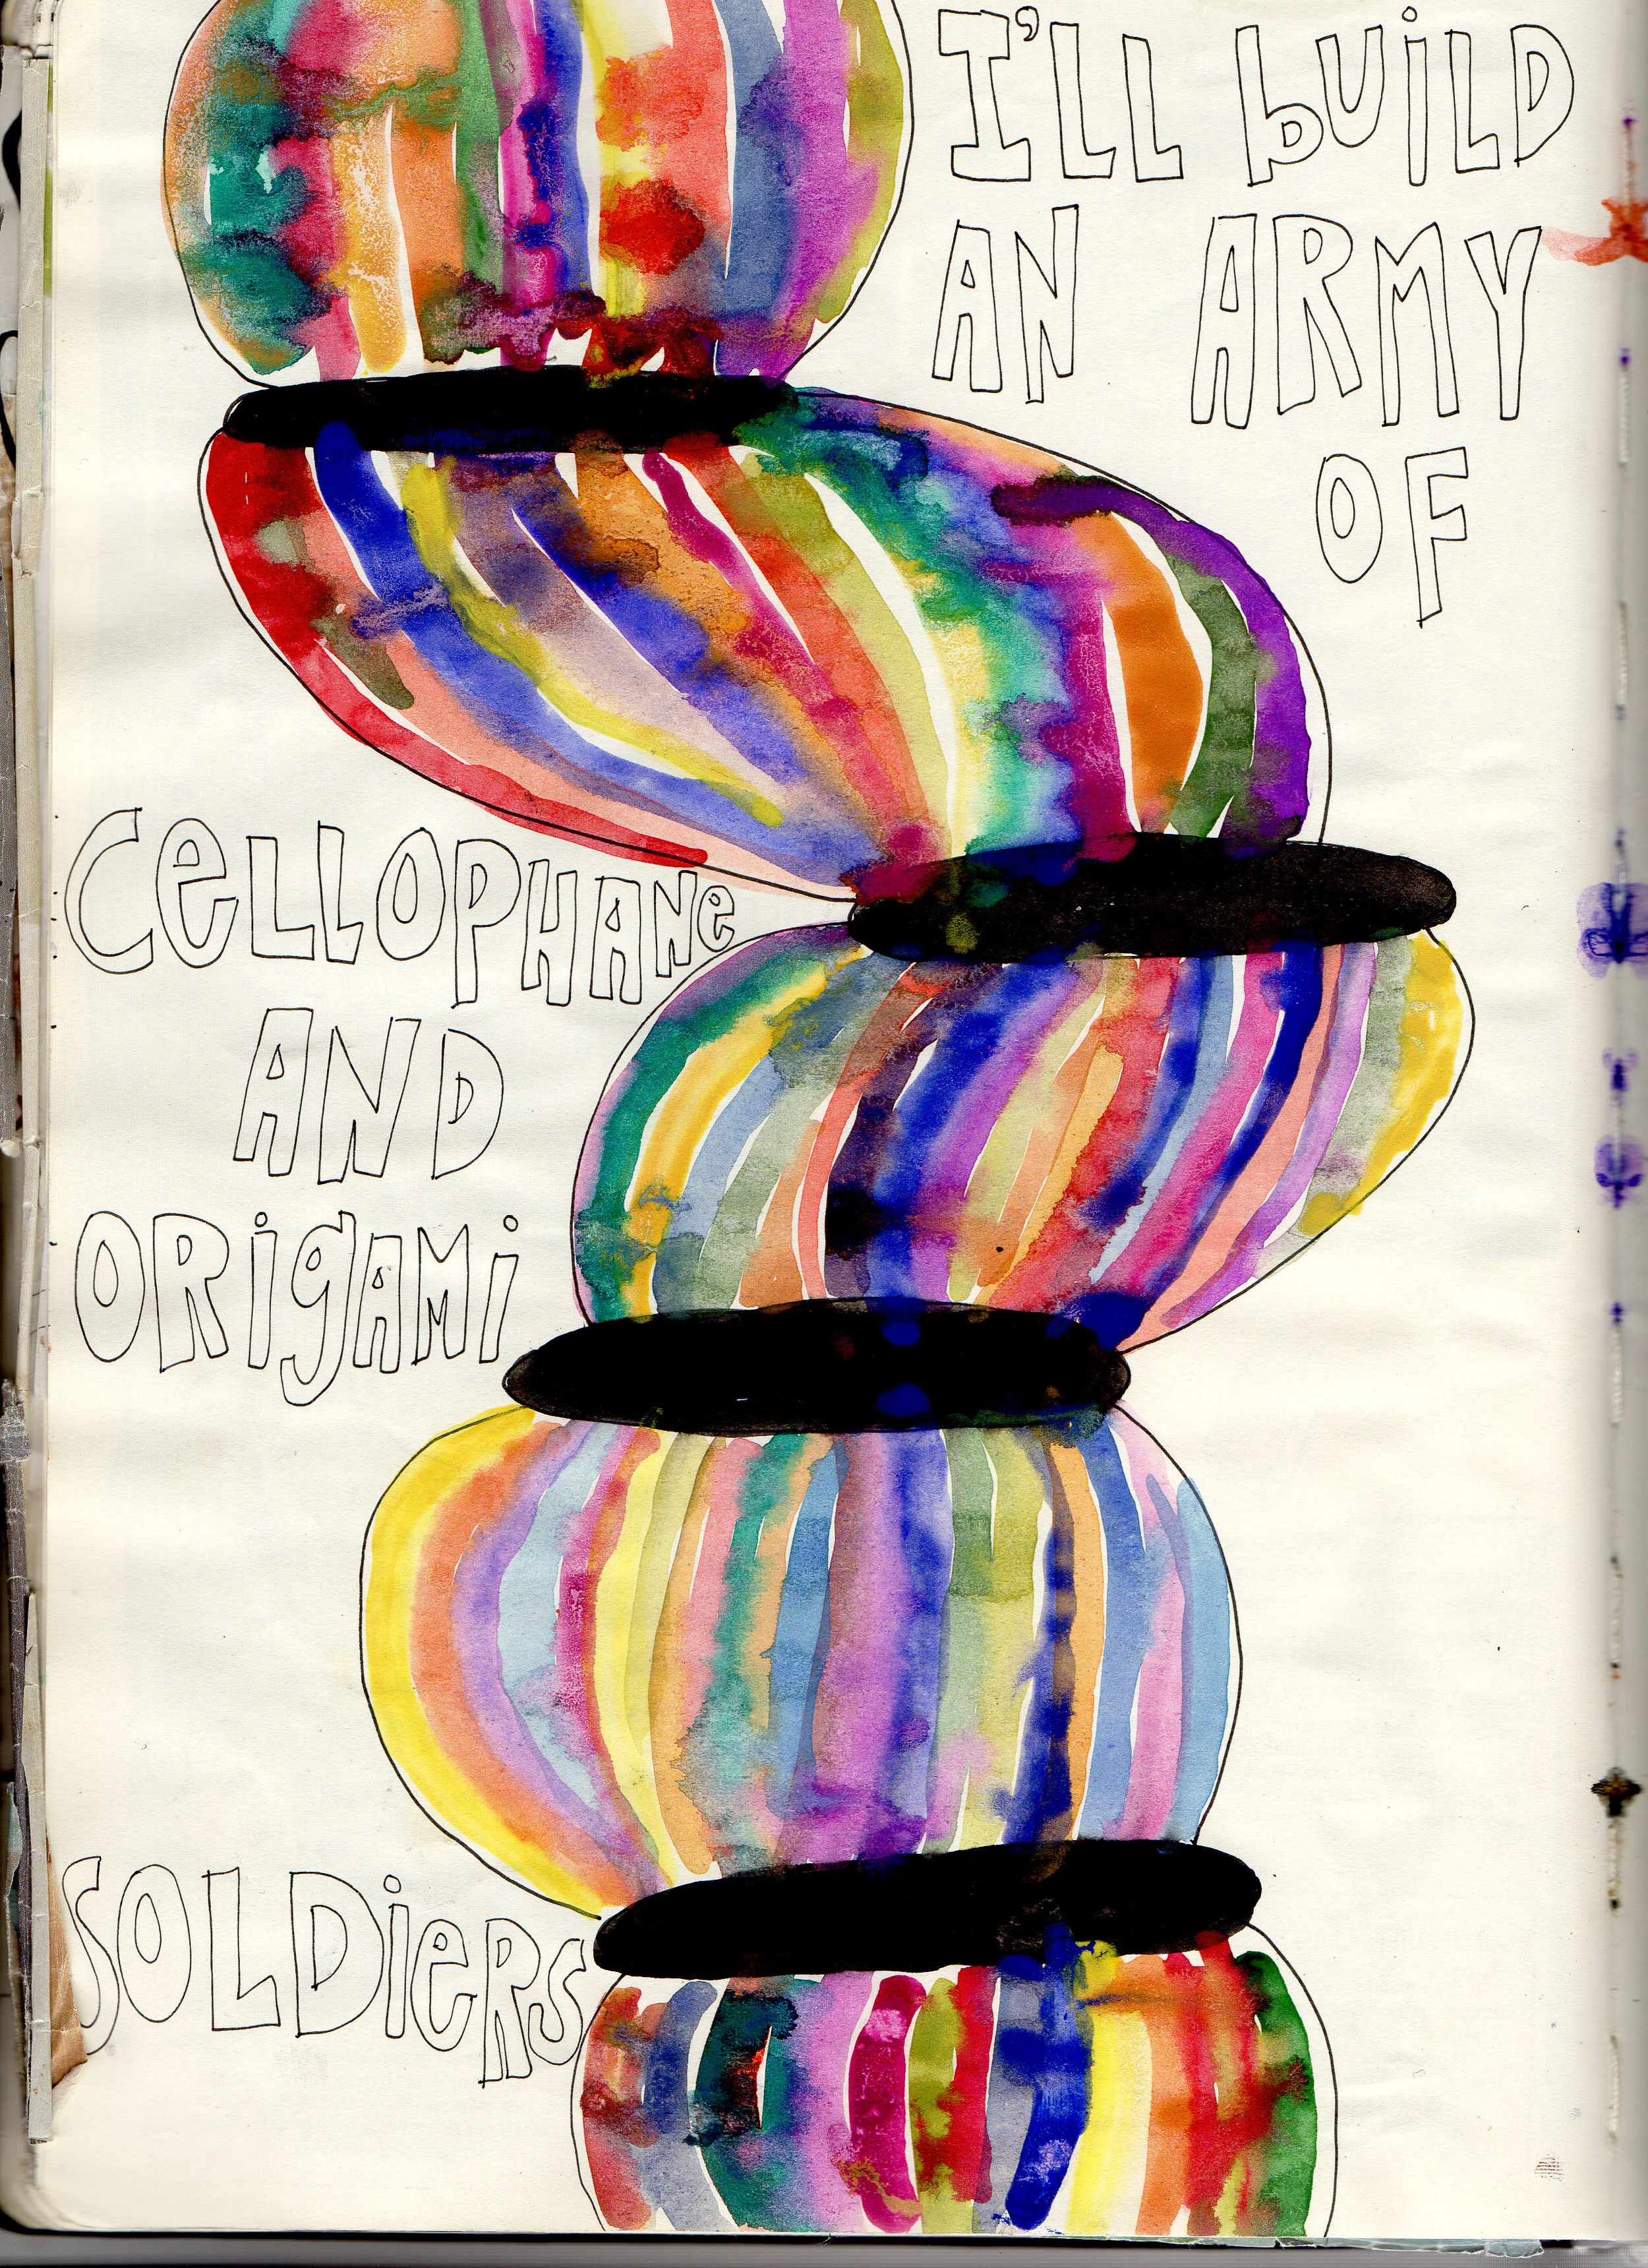 I'LL bUiLD
AN ARMY
OF
CeLLOPHANe
AND
ORigAMi
SOLDieRS